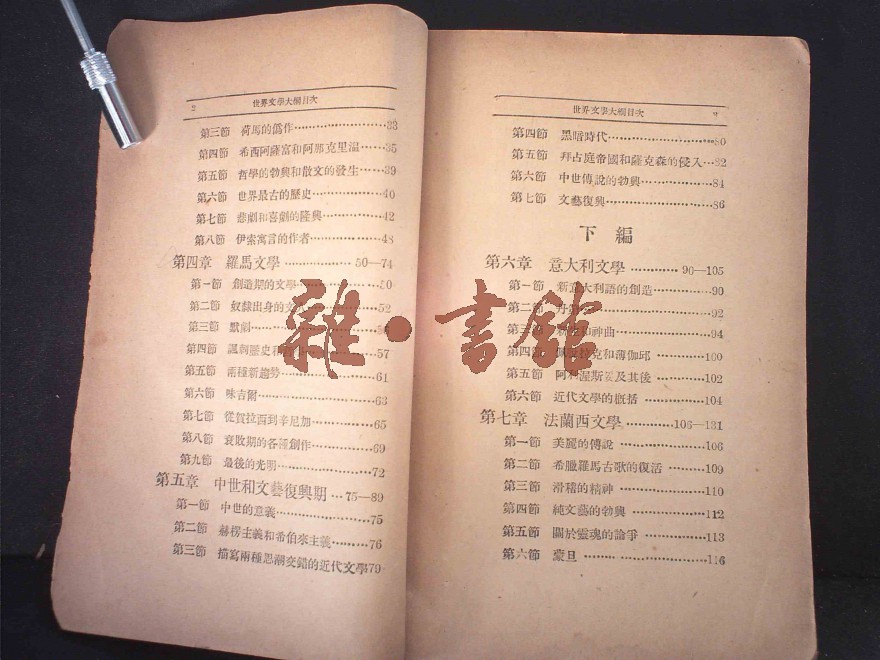 2 世界文學大綱目次
第三節 荷馬的僞作……33
第四節 希西阿薩富和阿那克里溫……35
第五節 哲學的勃興和散文的發生……39
第六節 世界最古的歷史……40
第七節 悲劇和喜劇的隆興……42
第八節 伊索寓言的作者……48
第四章 羅馬文學……50—74
第一節 創造期的文學……50
第二節 奴隸出身的文人……52
第三節 默劇……
第四節 諷刺歷史和……57
第五節 兩種新趨勢……61
第六節 味吉爾……63
第七節 從賀拉西到辛尼加……65
第八節 衰敗期的各種創作……69
第九節 最後的光明……72
第五章 中世和文藝復興期…75—89
第一節 中世的意義……75
第二節 赫楞主義和希伯來主義……76
第三節 描寫兩種思潮交錯的近代文學79
世界文學大綱目次
第四節 黑暗時代……80
第五節 拜占庭帝國和薩克森的侵入…82
第六節 中世傳說的勃興……84
第七節 文藝復興……86
下編
第六章 意大利文學……90—105
第一節 新意大利語的創造……90
第二節 丹……92
第三節 和神曲……94
第四節 拉克和薄伽邱……100
第五節 阿利渥斯妥及其後……102
第六節 近代文學的概括……104
第七章 法蘭西文學……106—131
第一節 美麗的傳說……106
第二節 希臘羅馬古歌的復活……109
第三節 滑稽的精神……110
第四節 純文藝的勃興……112
第五節 關於靈魂的論爭……113
第六節 蒙旦……116
雜·書館